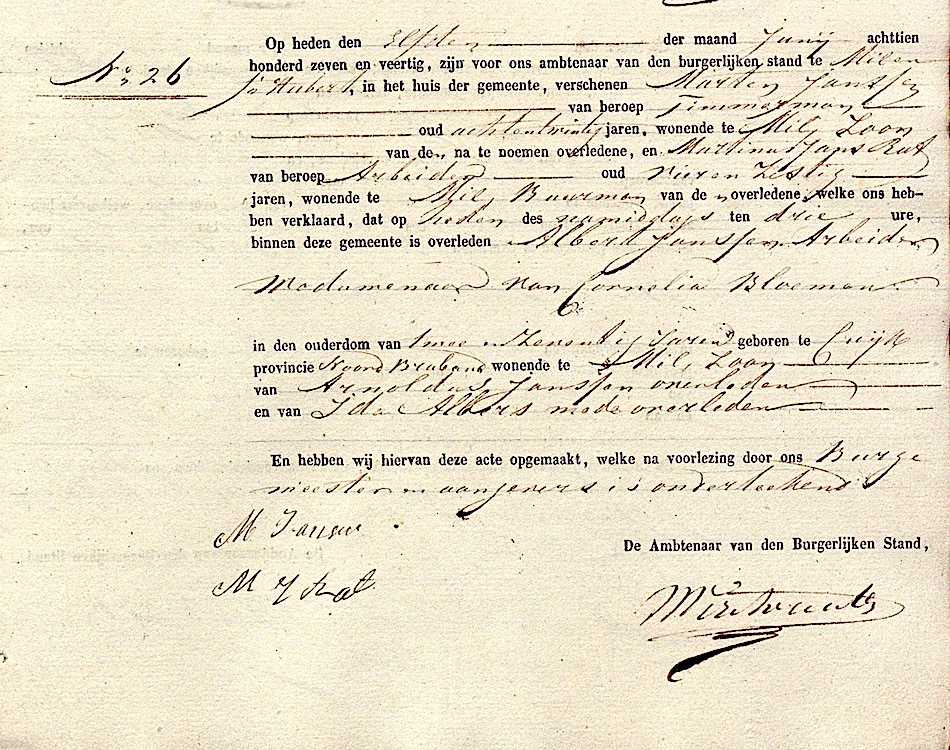 No 26
Op heden den Elfden der maand Junij achttien
honderd zeven en veertig, zijn voor ons ambtenaar van den burgerlijken stand te Mil en
St Hubert, in het huis der gemeente, verschenen Marten Janssen
van beroep Timmerman
oud achtentwintig jaren, wonende te Mil, Zoon
van den na te noemen overledene, en Martinus Jans Rat
van beroep Arbeider oud vier en Zestig
jaren, wonende te Mil, Buurman van de overledene, welke ons heb-
ben verklaard, dat op heden des namiddags ten drie ure,
binnen deze gemeente is overleden Albert Janssen Arbeider
Weduwenaar van Cornelia Bloemen
in den ouderdom van twee en Zeventig Jaren geboren te Cuijk
provincie Noord Braband wonende te Mil, Zoon
van Arnoldus Janssen overleden
en van Ida Albers mede overleden
En hebben wij hiervan deze acte opgemaakt, welke na voorlezing door ons Burge
meester en aangevers is onderteekend
M Jansen
M J Rat
De Ambtenaar van den Burgerlijken Stand,